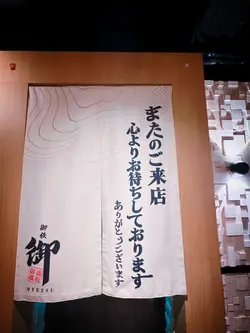 またのご来店
心よりお待ちしております
ありがとうございます
御鉄
御
OTETSU